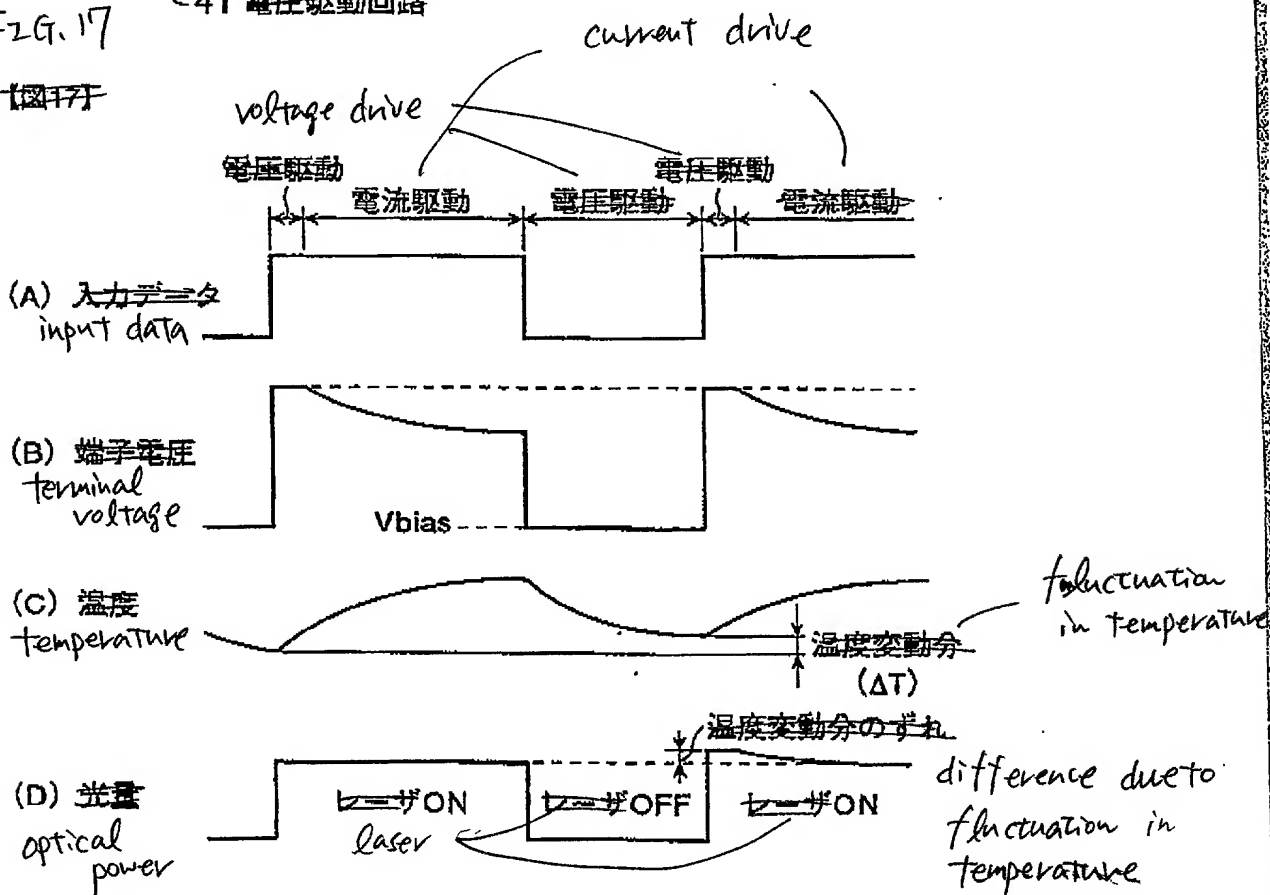 電圧駆動回路
FIG. 17
【図17】
current drive
voltage drive
電圧駆動
電圧駆動
電流駆動
電圧駆動
電流駆動
(A) 入力データ
input data
(B) 端子電圧
terminal
voltage
Vbias
(C) 温度
temperature
fluctuation
in temperature
温度変動分
(ΔT)
温度変動分のずれ
(D) 光量
optical
power
レーザON
レーザOFF
レーザON
laser
difference due to
fluctuation in
temperature